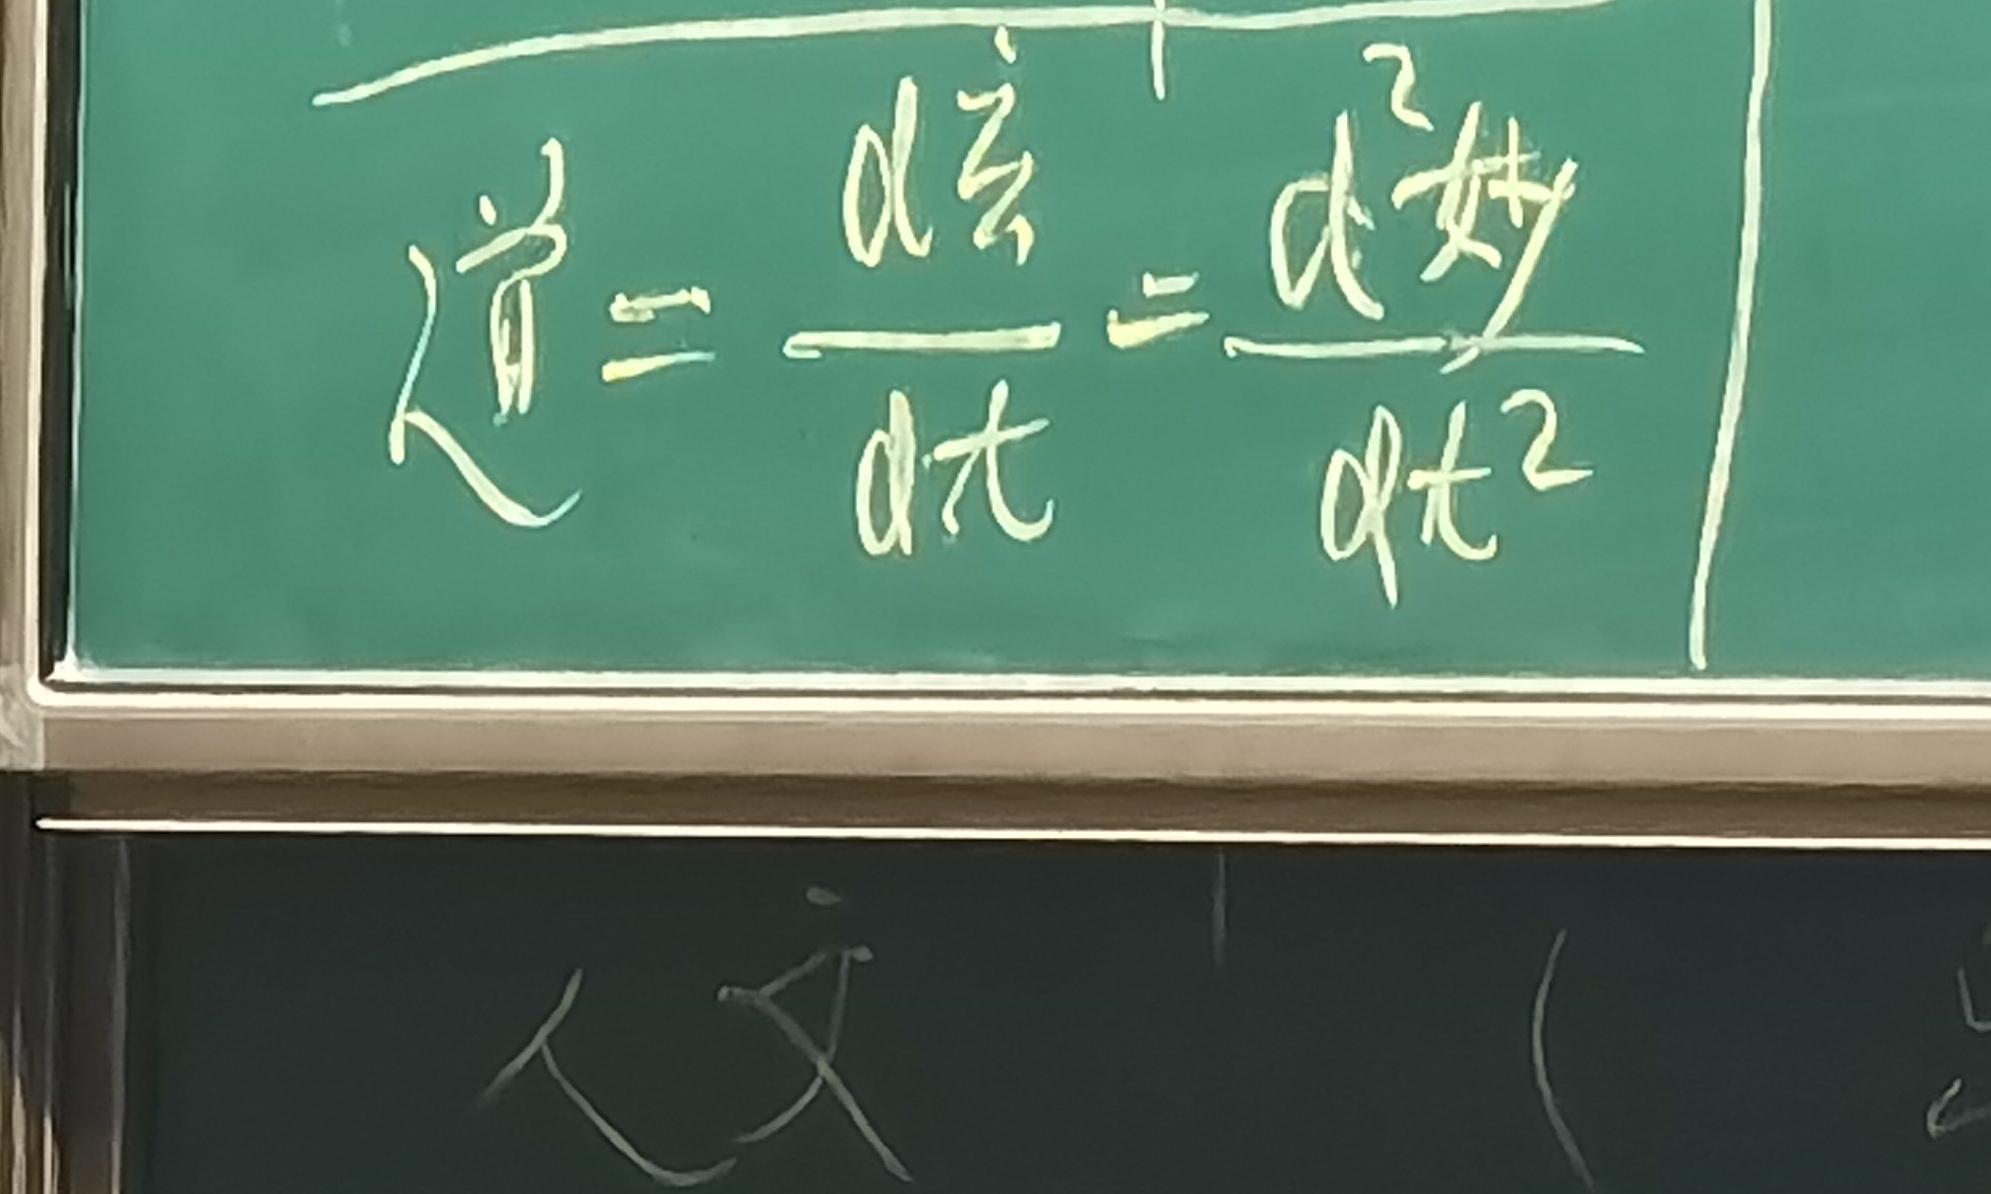 道 = d玄/dt = d²妙/dt²